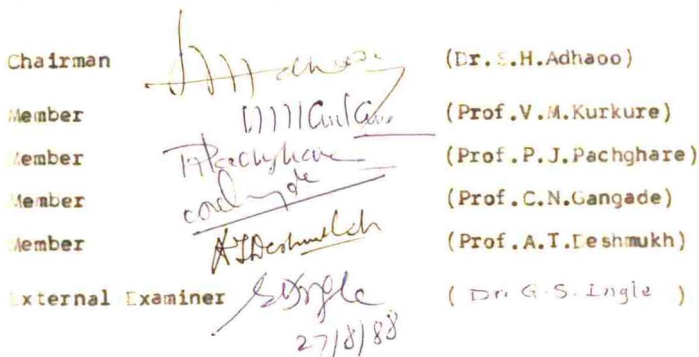 Chairman (Dr.S.H.Adhaoo)
Member (Prof.V.M.Kurkure)
Member Pachghare (Prof.P.J.Pachghare)
Member (Prof.C.N.Gangade)
Member A.T.Deshmukh (Prof.A.T.Deshmukh)
External Examiner (Dr. G.S. Ingle)
27/8/88